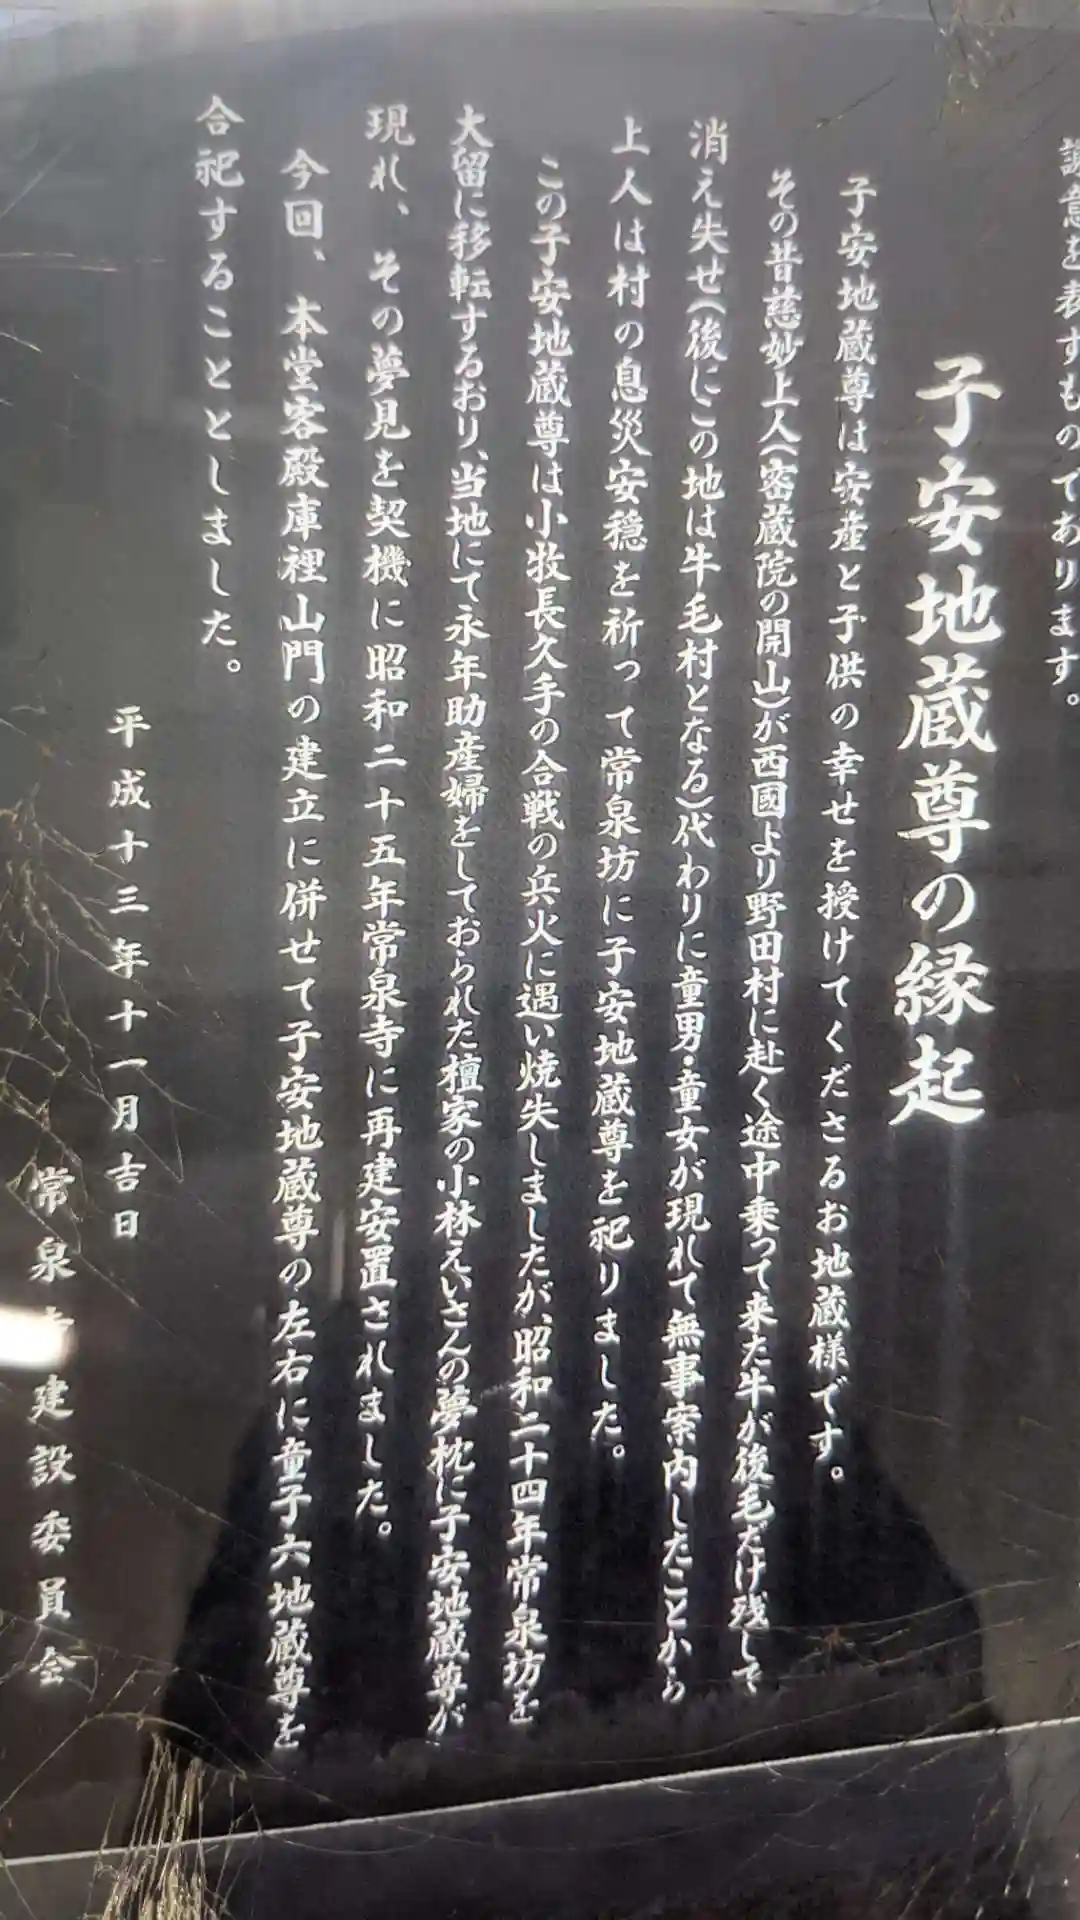 謝意を表すものであります。
子安地蔵尊の縁起
子安地蔵尊は安産と子供の幸せを授けてくださるお地蔵様です。
その昔慈妙上人(密蔵院の開山)が西國より野田村に赴く途中乗って来た牛が後毛だけ残して
消え失せ(後にこの地は牛毛村となる)代わりに童男・童女が現れて無事案内したことから
上人は村の息災安穏を祈って常泉坊に子安地蔵尊を祀りました。
この子安地蔵尊は小牧長久手の合戦の兵火に遇い焼失しましたが、昭和二十四年常泉坊を
大留に移転するおり、当地にて永年助産婦をしておられた檀家の小林えいさんの夢枕に子安地蔵尊が
現れ、その夢見を契機に昭和二十五年常泉寺に再建安置されました。
今回、本堂客殿庫裡山門の建立に併せて子安地蔵尊の左右に童子六地蔵尊を
合祀することとしました。
平成十三年十一月吉日
常泉寺建設委員会